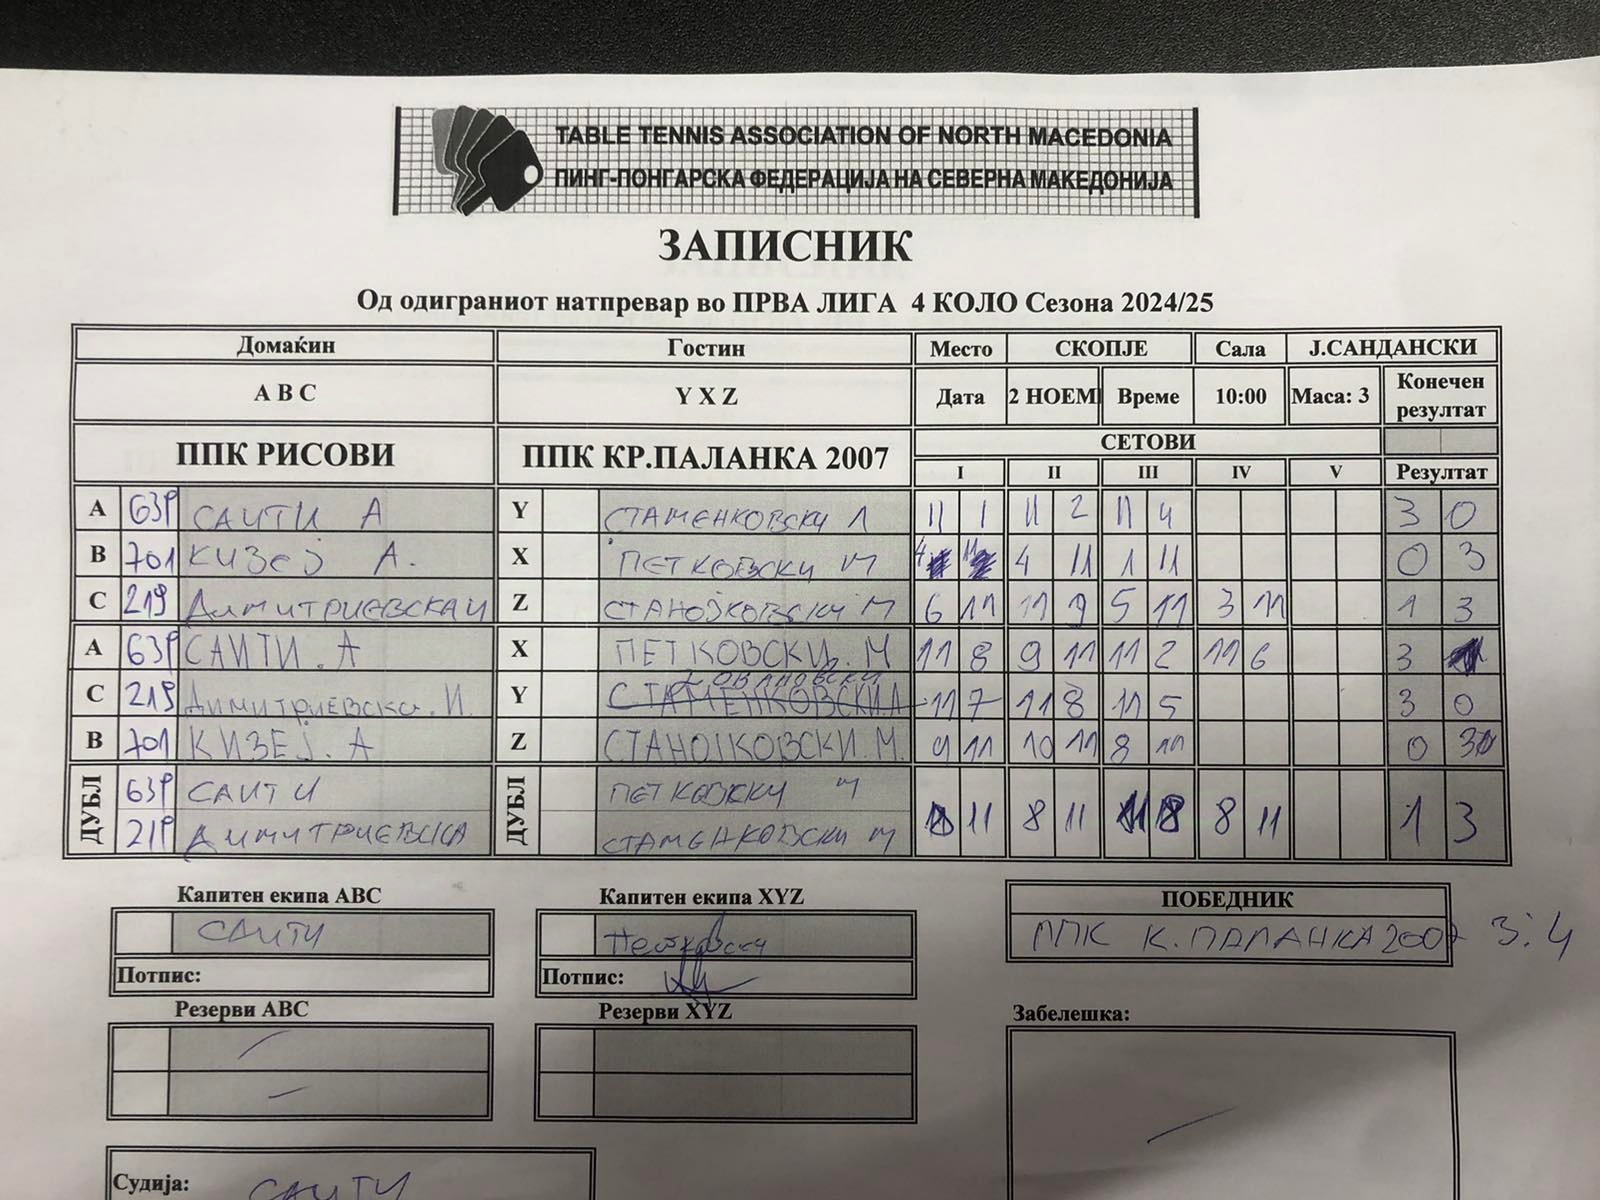 TABLE TENNIS ASSOCIATION OF NORTH MACEDONIA
ПИНГ-ПОНГАРСКА ФЕДЕРАЦИЈА НА СЕВЕРНА МАКЕДОНИЈА
ЗАПИСНИК
Од одиграниот натпревар во ПРВА ЛИГА 4 КОЛО Сезона 2024/25
Домаќин Гостин Место СКОПЈЕ Сала Ј.САНДАНСКИ
A B C Y X Z Дата 2 НОЕМ Време 10:00 Маса: 3 Конечен резултат
ППК РИСОВИ ППК КР.ПАЛАНКА 2007 СЕТОВИ
I II III IV V Резултат
A 639 САИТИ А Y СТАМЕНКОВСКИ Л 11 1 11 2 11 4 3 0
B 701 КИЗЕЈ А. X ПЕТКОВСКИ М 4 11 4 11 1 11 0 3
C 219 ДИМИТРИЕВСКА И Z СТАНОЈКОВСКИ М 6 11 11 9 5 11 3 11 1 3
A 639 САИТИ. А X ПЕТКОВСКИ. М 11 8 9 11 11 2 11 6 3
C 219 ДИМИТРИЕВСКА. И. Y 11 7 11 8 11 5 3 0
B 701 КИЗЕЈ. А Z СТАНОЈКОВСКИ. М. 9 11 10 11 8 11 0 3
ДУБЛ 639 САИТИ ДУБЛ ПЕТКОВСКИ М
219 ДИМИТРИЕВСКА СТАМЕНКОВСКИ М 11 8 11 11 8 8 11 1 3
Капитен екипа ABC Капитен екипа XYZ ПОБЕДНИК
САИТИ Петковски ППК К.ПАЛАНКА 2007 3:4
Потпис: Потпис:
Резерви ABC Резерви XYZ Забелешка:
Судија: САИТИ